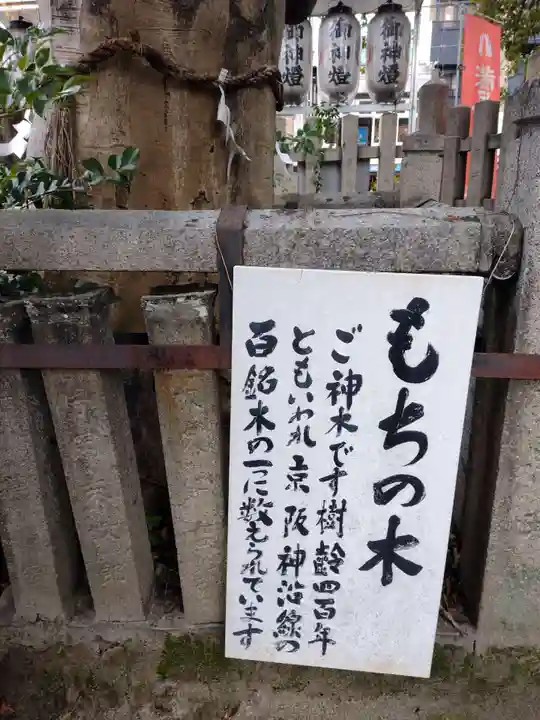 もちの木
ご神木です樹齢四百年
ともいわれ京阪神沿線の
百銘木の一つに数えられています
御神燈
御神燈
御神燈
八